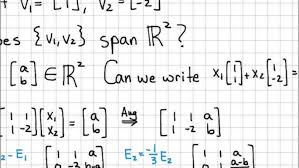 V₁ = [1], V₂ = [-2]
es {V₁, V₂} span ℝ²?
[a b] ∈ ℝ² Can we write x₁[1 1] + x₂[1 -2] =
[1 1 1 -2][x₁ x₂] = [a b] Aug → [1 1 a 1 -2 b]
₂ - E₁ [1 1 a -3 b-a] E₂ = -1/3 E₂ [1 1 a a-b]